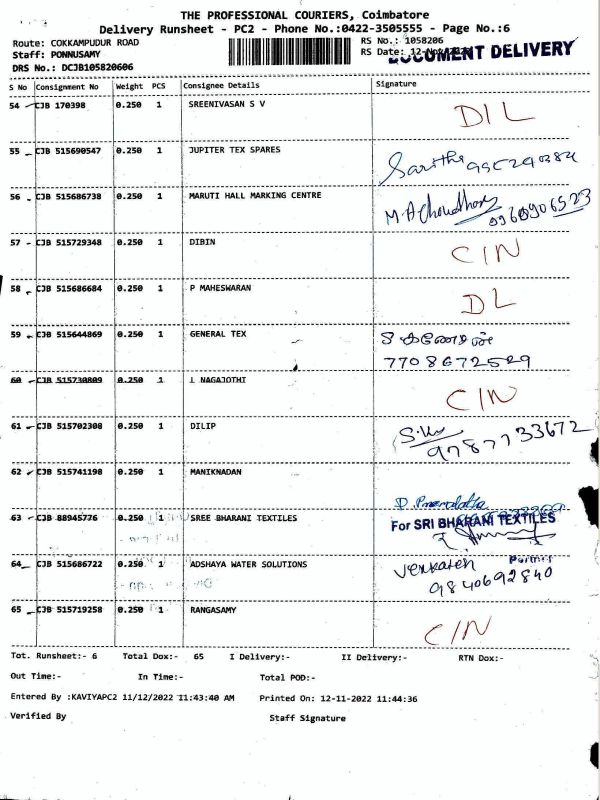 THE PROFESSIONAL COURIERS, Coimbatore
Delivery Runsheet - PC2 - Phone No.:0422-3505555 - Page No.:6
Route: COKKAMPUDUR ROAD
RS No.: 1058206
Staff: PONNUSAMY
RS Date: 12-Nov-2022
DOCUMENT DELIVERY
DRS No.: DCJB105820606
S No Consignment No Weight PCS Consignee Details Signature
54 CJB 170398 0.250 1 SREENIVASAN S V DIL
55 CJB 515690547 0.250 1 JUPITER TEX SPARES Saritha
56 CJB 515686738 0.250 1 MARUTI HALL MARKING CENTRE M.A Choudhary 9960906523
57 CJB 515729348 0.250 1 DIBIN C/N
58 CJB 515686684 0.250 1 P MAHESWARAN DL
59 CJB 515644869 0.250 1 GENERAL TEX
7708672529
60 CJB 515730809 0.250 1 L NAGAJOTHI C/N
61 CJB 515702308 0.250 1 DILIP 9787733672
62 CJB 515741198 0.250 1 MANIKNADAN
63 CJB 88945776 0.250 1 SREE BHARANI TEXTILES For SRI BHARANI TEXTILES
Partner
64 CJB 515686722 0.250 1 ADSHAYA WATER SOLUTIONS Venkatesh
9840692840
65 CJB 515719258 0.250 1 RANGASAMY C/N
Tot. Runsheet:- 6 Total Dox:- 65 I Delivery:- II Delivery:- RTN Dox:-
Out Time:- In Time:- Total POD:-
Entered By :KAVIYAPC2 11/12/2022 11:43:40 AM Printed On: 12-11-2022 11:44:36
Verified By Staff Signature